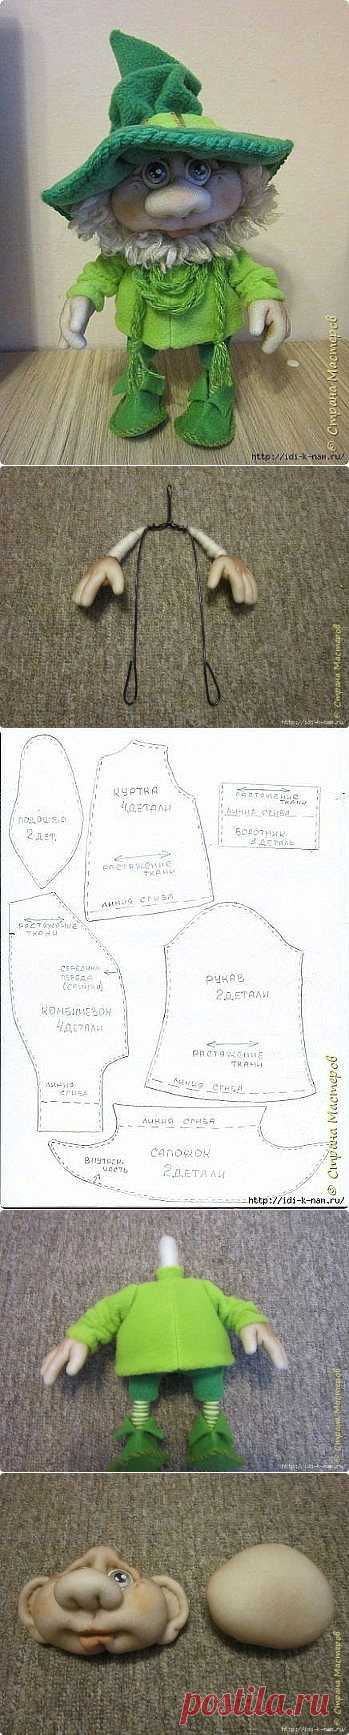 © Страна Мастеров
http://idi-k-nam.ru/
© Страна Мастеров
http://idi-k-nam.ru/
ПОДОШВА
2 ДЕТ.
КУРТКА
4 ДЕТАЛИ
РАСТЯЖЕНИЕ
ТКАНИ
ЛИНИЯ СГИБА
РАСТЯЖЕНИЕ
ТКАНИ
ЛИНИЯ СГИБА
ВОРОТНИК
2 ДЕТАЛИ
РАСТЯЖЕНИЕ
ТКАНИ
СЕРЕДИНА
ПЕРЕДА
(СПИНКИ)
КОМБИНЕЗОН
4 ДЕТАЛИ
ЛИНИЯ
СГИБА
РУКАВ
2 ДЕТАЛИ
РАСТЯЖЕНИЕ
ТКАНИ
ЛИНИЯ СГИБА
ЛИНИЯ СГИБА
САПОЖОК
2 ДЕТАЛИ
ВНУТРЕН.
ЧАСТЬ
© Страна Мастеров
http://idi-k-nam.ru/
© Страна Мастеров
http://idi-k-nam.ru/
© Страна Мастеров
http://idi-k-nam.ru/
postila.ru